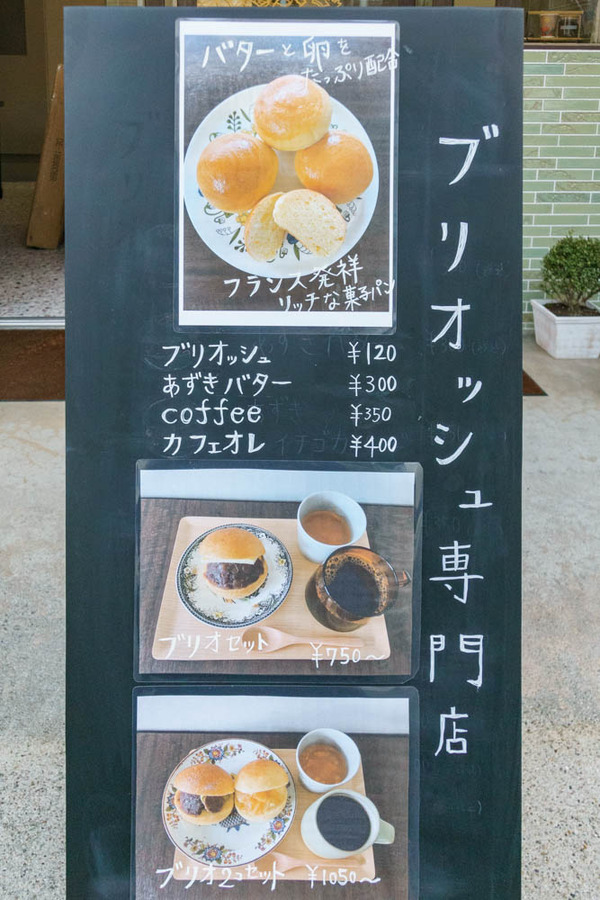 ブリオッシュ専門店
バターと卵を
たっぷり配合
フランス発祥
リッチな菓子パン
ブリオッシュ ¥120
あずきバター ¥300
coffee ¥350
カフェオレ ¥400
ブリオセット ¥750～
ブリオ2つセット ¥1050～